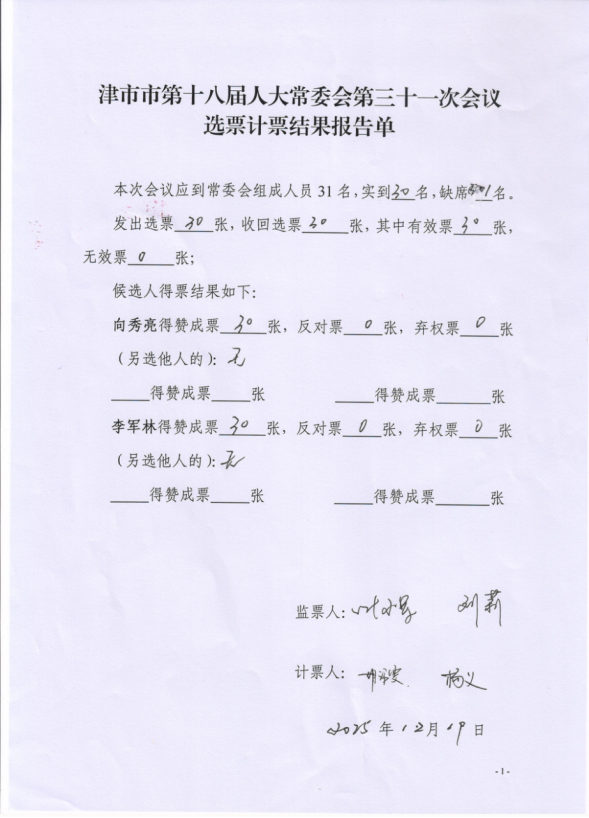 津市市第十八届人大常委会第三十一次会议
选票计票结果报告单
本次会议应到常委会组成人员 31 名，实到 30 名，缺席 1 名。
发出选票 30 张，收回选票 30 张，其中有效票 30 张，
无效票 0 张；
候选人得票结果如下：
向秀亮得赞成票 30 张，反对票 0 张，弃权票 0 张
（另选他人的）：无
____得赞成票____张 ____得赞成票____张
李军林得赞成票 30 张，反对票 0 张，弃权票 0 张
（另选他人的）：无
____得赞成票____张 ____得赞成票____张
监票人： 刘莉
计票人： 杨义
2025 年 12 月 19 日
-1-